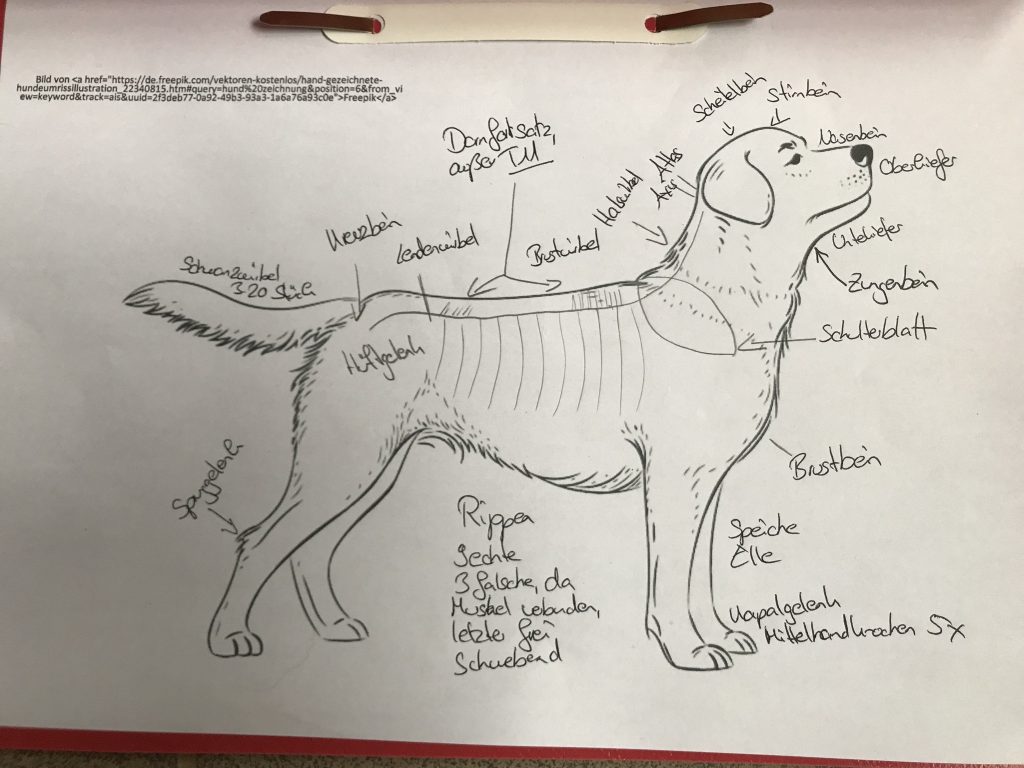 Bild von <a href="https://de.freepik.com/vektoren-kostenlos/hand-gezeichnete-
hundeumrissillustration_22340815.htm#query=hund%20zeichnung&position=6&from_vi
ew=keyword&track=ais&uuid=2f3deb77-0a92-49b3-93a3-1a6a76a93c0e">Freepik</a>
Scheitelbein
Stirnbein
Nasenbein
Oberkiefer
Dornfortsatz,
außer I, II
Atlas
Axis
Halswirbel
Unterkiefer
Zungenbein
Kreuzbein
Lendenwirbel
Brustwirbel
Schwanzwirbel
3-20 Stück
Schulterblatt
Hüftgelenk
Brustbein
Sprunggelenk
Rippen
9 echte
3 falsche, da
Muskel verbunden,
letzte frei
Schwebend
Speiche
Elle
Karpalgelenk
Mittelhandknochen 5x